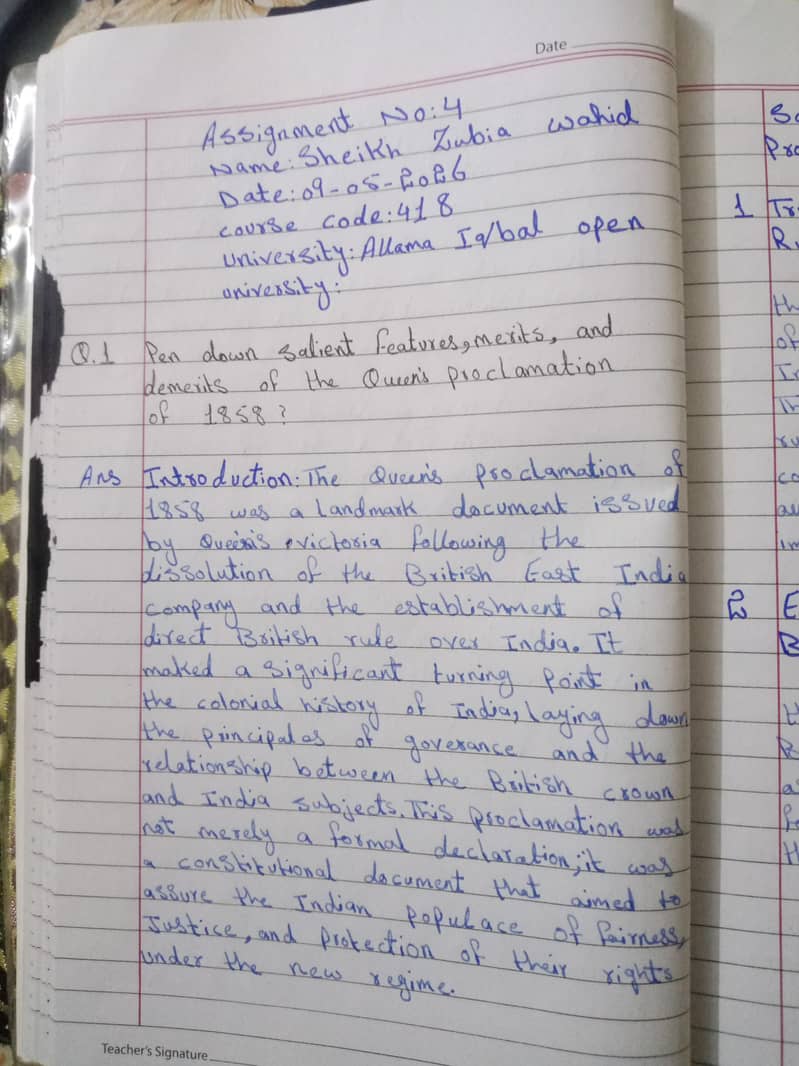 Date
Assignment No:4
Name: Sheikh Zubia wahid
Date: 09-05-2026
course code: 418
university: Allama Iqbal open
university:
Q.1 Pen down salient features, merits, and
demerits of the Queen's proclamation
of 1858?
Ans Introduction: The Queen's proclamation of
1858 was a landmark document issued
by Queen's victoria following the
dissolution of the British East India
company and the establishment of
direct British rule over India. It
maked a significant turning point in
the colonial history of India, laying down
the principales of goverance and the
relationship between the British crown
and India subjects. This proclamation was
not merely a formal declaration; it was
a constitutional document that aimed to
assure the Indian populace of fairness,
Justice, and protection of their rights
under the new regime.
Teacher's Signature
1
2